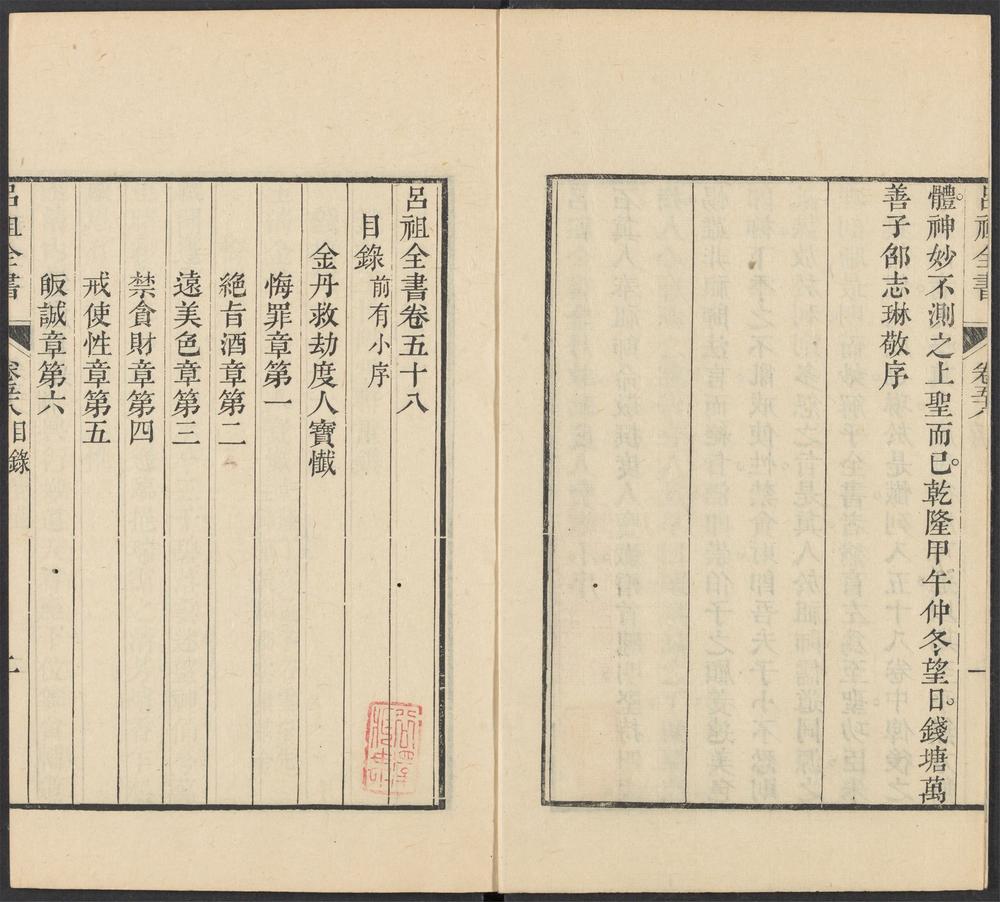 呂祖全書
卷五十八
一
體神妙不測之上聖而已。乾隆甲午仲冬望日。錢塘萬
善子邵志琳敬序
呂祖全書卷五十八
目錄前有小序
金丹救劫度人寶懺
悔罪章第一
絶旨酒章第二
遠美色章第三
禁貪財章第四
戒使性章第五
皈誠章第六
呂祖全書
目錄